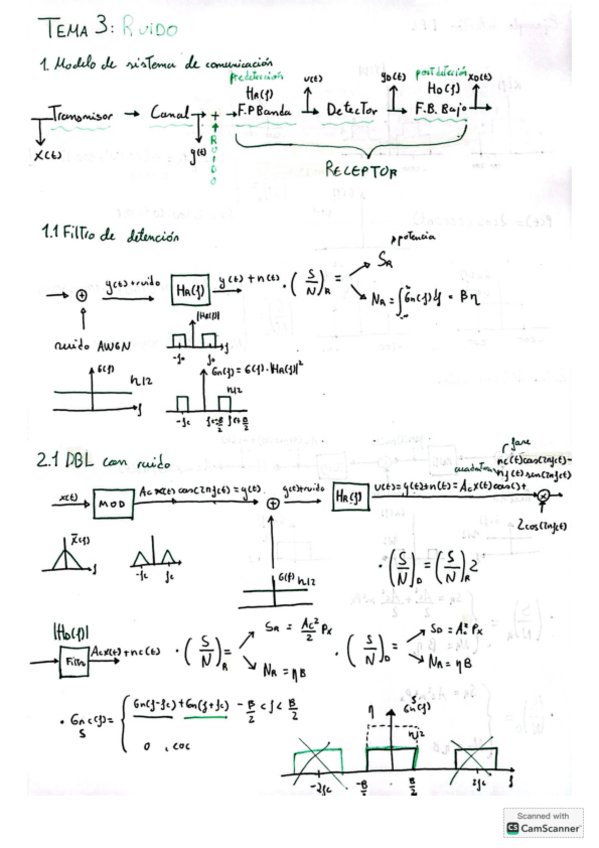 TEMA 3: RUIDO
1. Modelo de sistema de comunicación
predetección v(t) yD(t) postdetección xD(t)
HR(f) HD(f)
Transmisor → Canal → + → F.P Banda → Detector → F.B. Bajo
x(t) y(t) RUIDO
RECEPTOR
1.1 Filtro de detención
potencia
y(t)+ruido HR(f) y(t)+n(t) · (S/N)R = SR
NR = ∫Gn(f)df = Bη
ruido AWGN |HR(f)|
-fc fc f
G(f) Gn(f) = G(f)·|HR(f)|²
η/2 η/2
f -fc fc-B/2 fc+B/2
2.1 DBL con ruido
fase
cuadratura nc(t)cos(2πfct)-
nf(t)sen(2πfct)
x(t) MOD Ac x(t) cos(2πfct)=y(t) y(t)+ruido HR(f) v(t)=y(t)+n(t)=Acx(t)cos()+
2cos(2πfct)
X(f) f -fc fc
G(f) η/2 · (S/N)D = (S/N)R 2
|HD(f)|
Filtro Acx(t)+nc(t) · (S/N)R = SR = Ac²/2 Px
NR = ηB
· (S/N)D = SD = Ac² Px
NR = ηB
· Gnc(f) = Gn(f-fc)+Gn(f+fc) -B/2 < f < B/2
0 , coc
η Gn(f)
η/2
-2fc -B/2 B/2 2fc f
Scanned with
CS CamScanner